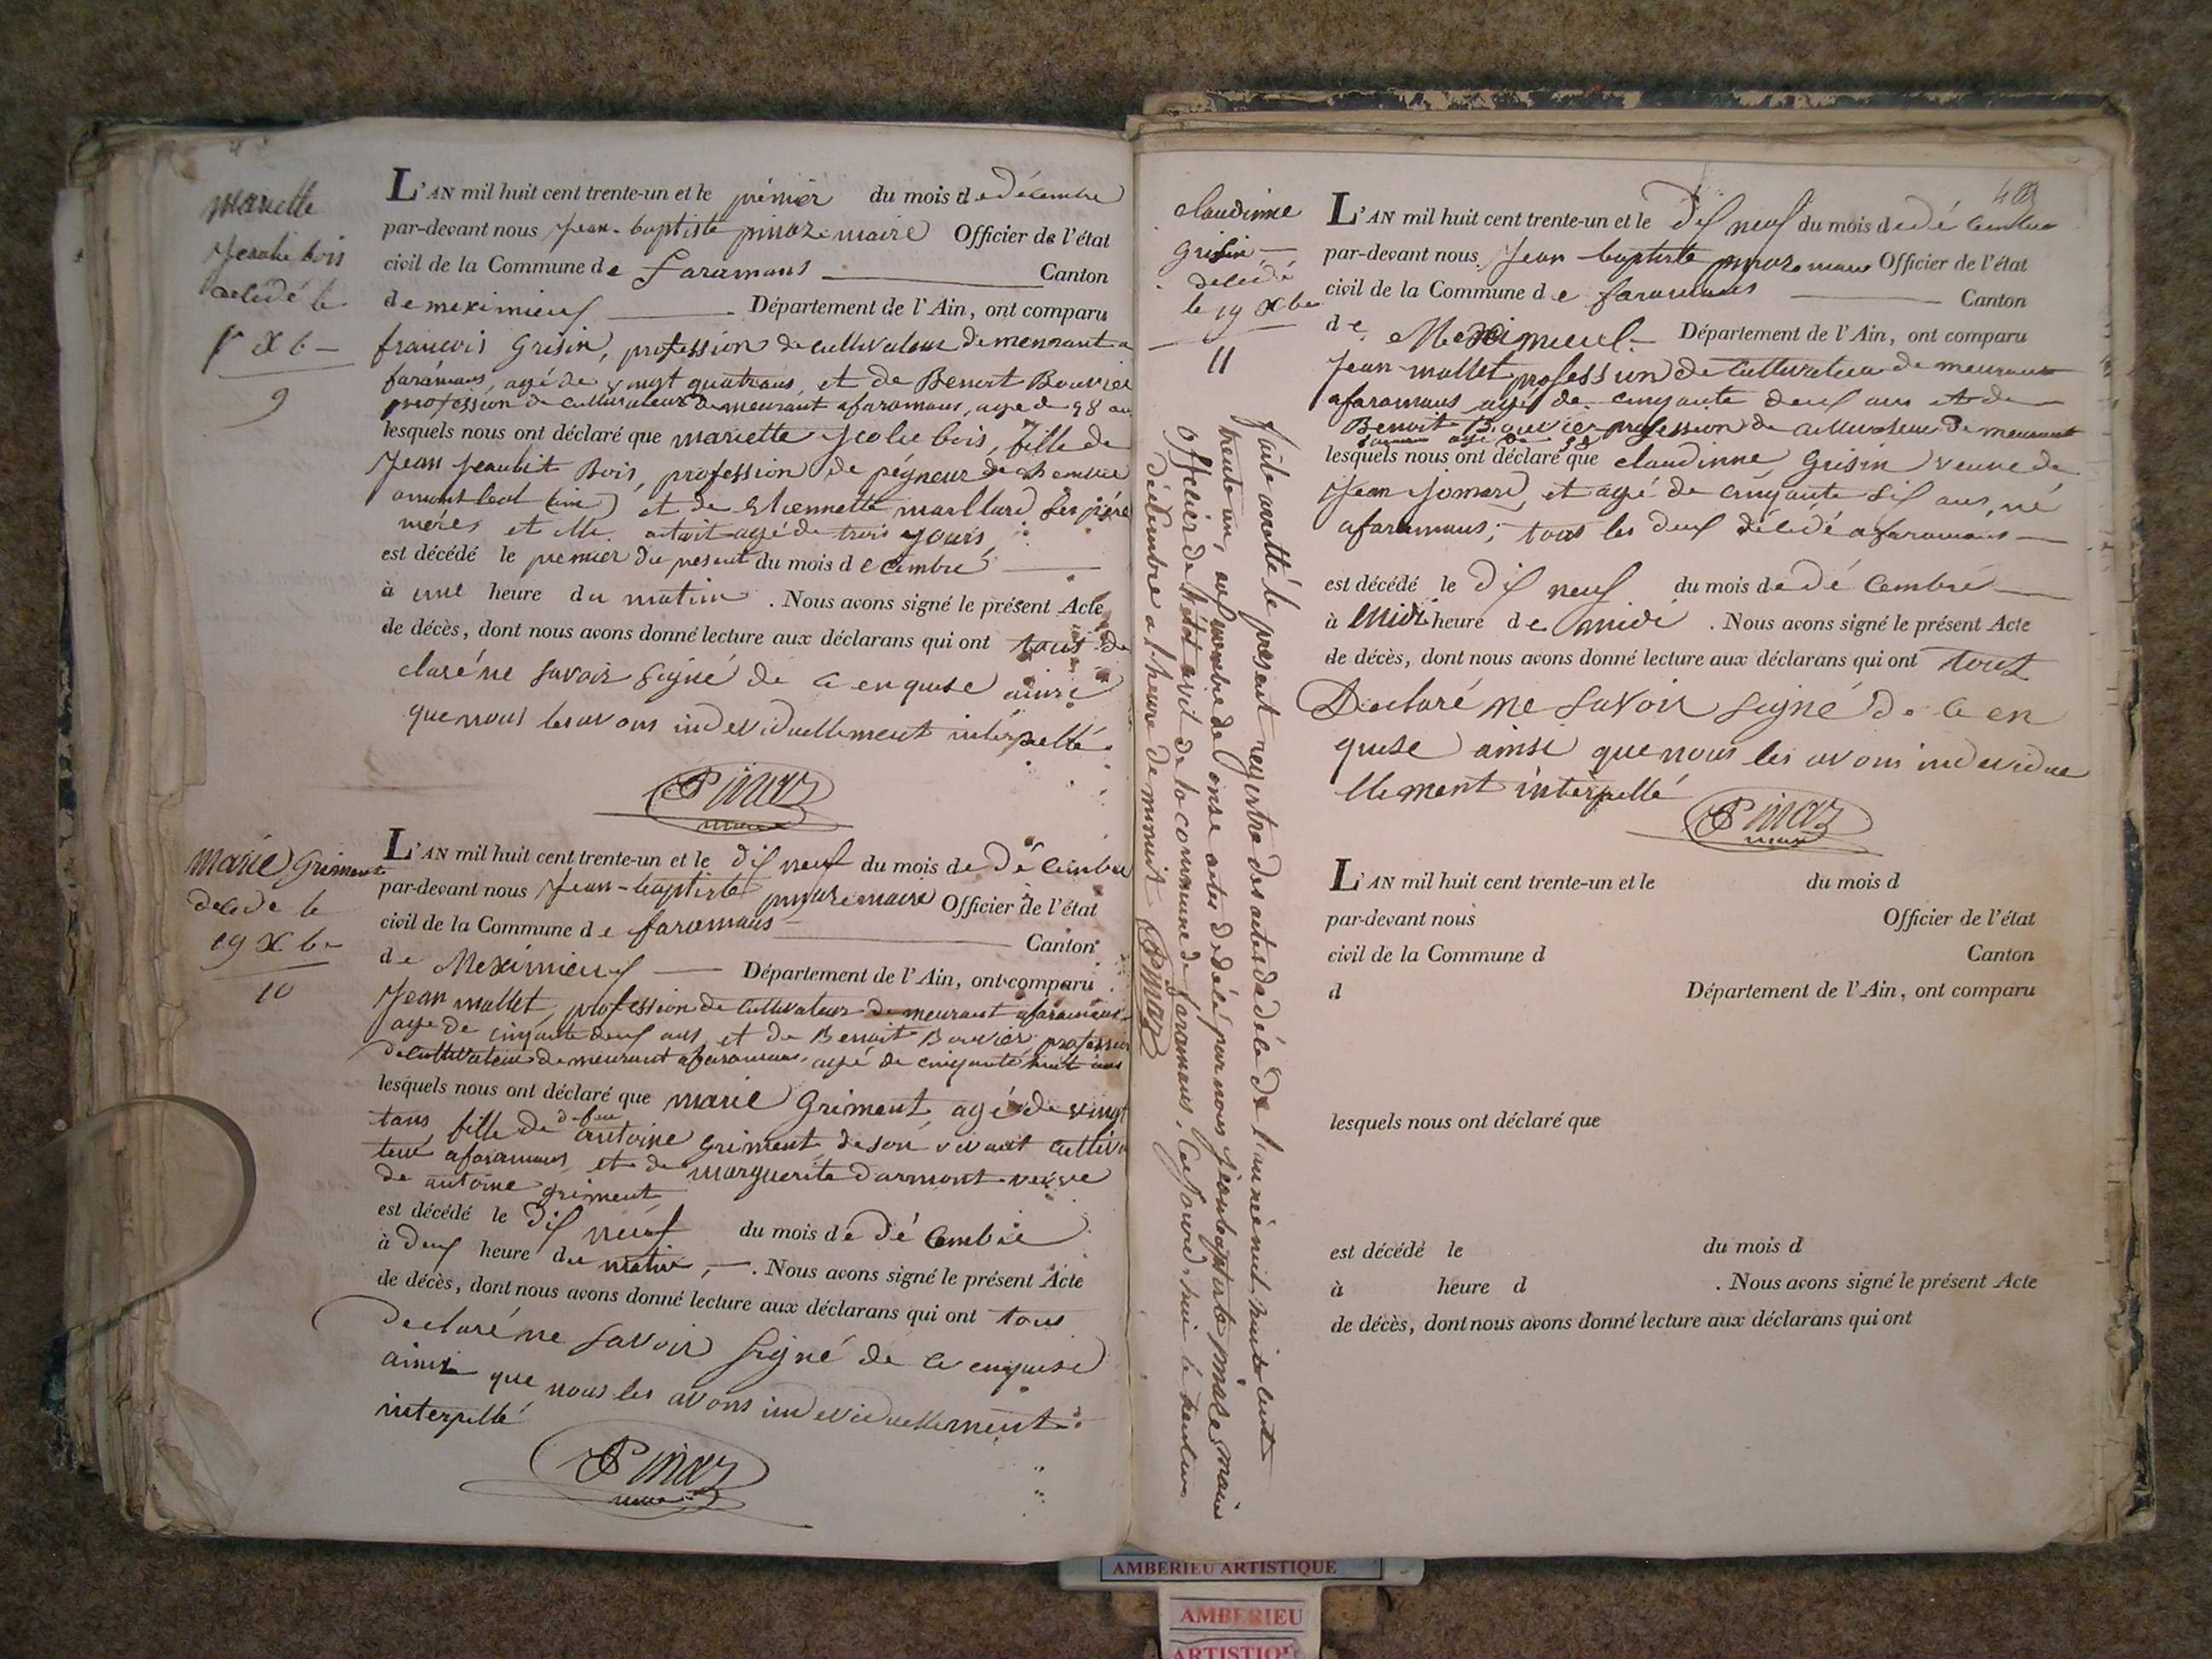 Mariette
décédé le
1er Xb
9
L'AN mil huit cent trente-un et le prémier du mois de décembre
par-devant nous Jean-baptiste pinaz maire Officier de l'état
civil de la Commune de faramans Canton
de meximieux Département de l'Ain, ont comparu
francois Grisin, profession de cultivateur demeurant a
faramans, agé de vingt quatre ans, et de Benoit Bouvier
profession de cultivateur demeurant a faramans, age de 58 an
lesquels nous ont déclaré que mariette bois, fille de
Jean Bois, profession de pégneur de
(ain) et de Etiennette maillard ses pére
méres et elle etait agé de trois jours
est décédé le premier du present du mois decembre
à une heure du matin . Nous avons signé le présent Acte
de décès, dont nous avons donné lecture aux déclarans qui ont tous dé
claré ne savoir signé de ce enquise ainsi
que nous les avons individuellement intérpellé
Pinaz
maire
Marie Griment
décédé le
19 Xbr
10
L'AN mil huit cent trente-un et le dix neuf du mois de Décembre
par-devant nous Jean-baptiste pinaz maire Officier de l'état
civil de la Commune de faramans Canton
de Meximieux Département de l'Ain, ont comparu
Jean mallet, profession de cultivateur demeurant a faramans
age de cinquante deux ans et de Benoit Bouvier profession
de cultivateur demeurant a faramans, agé de cinquante huit ans
lesquels nous ont déclaré que marie Griment, agé de vingt
tans fille de defeu antoine Griment de son vivant cultiva
teur a faramans, et de marguerite darmont veuve
de antoine griment
est décédé le dix neuf du mois de décembre
à deux heure du matin, . Nous avons signé le présent Acte
de décès, dont nous avons donné lecture aux déclarans qui ont tous
declaré ne savoir signé de ce enquise
ainsi que nous les avons individuellement
interpellé
Pinaz
maire
claudinne
Grisin
décédé
le 19 Xbr
11
faite arretté le présent regestre des actes de décé de l'année mil huit cent
trente un, au nombre de onse actes dédélé par nous jean baptiste pinaz, maire
officier de l'état civil de la commune de faramans. Ce jourd'hui le trente un
décembre a heure de minuit Pinaz
L'AN mil huit cent trente-un et le dix neuf du mois de décembre
par-devant nous Jean-baptiste pinaz maire Officier de l'état
civil de la Commune de faramans Canton
de Meximieux Département de l'Ain, ont comparu
Jean mallet profession de Cultivateur demeurant
a faramans agé de cinquante deux ans et de
Benoit Bouvier profession de cultivateur demeurant
age de 58
lesquels nous ont déclaré que claudinne Grisin veuve de
Jean Jomard, et agé de cinquante six ans, né
a faramans; tous les deux décédé a faramans
est décédé le dix neuf du mois de décembre
à midi heure de midi . Nous avons signé le présent Acte
de décès, dont nous avons donné lecture aux déclarans qui ont tous
Declaré ne savoir signé de ce en
quise ainsi que nous les avons individue
llement interpellé
Pinaz
maire
L'AN mil huit cent trente-un et le du mois d
par-devant nous Officier de l'état
civil de la Commune d Canton
d Département de l'Ain, ont comparu
lesquels nous ont déclaré que
est décédé le du mois d
à heure d . Nous avons signé le présent Acte
de décès, dont nous avons donné lecture aux déclarans qui ont
AMBERIEU ARTISTIQUE
AMBERIEU
ARTISTIQ